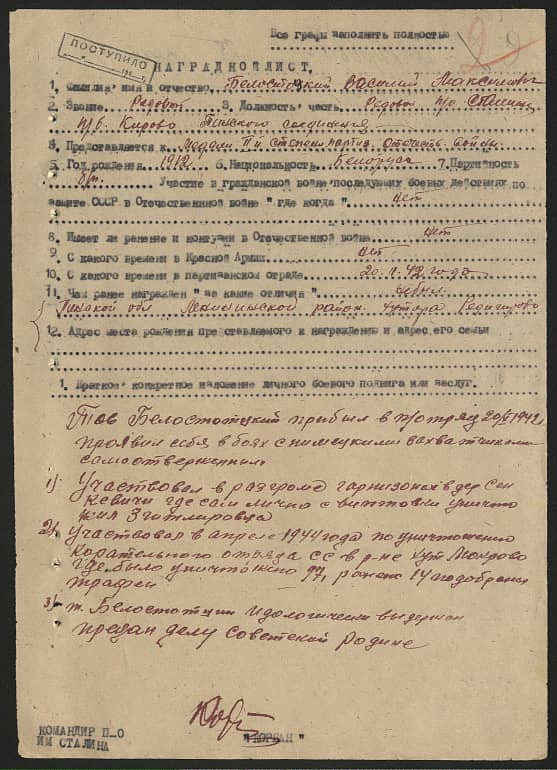 Все графы заполнить полностью
ПОСТУПИЛО
НАГРАДНОЙ ЛИСТ.
1. Фамилия, имя и отчество Белостоцкий Василий Максимович
2. Звание Рядовой 3. Должность, часть Рядовой п/о Сталина
п/б. Кирова Пинского соединения
4. Представляется к медали II й степени партиз. Отечеств. войны
5. Год рождения 1912 6. Национальность Белорус 7. Партийность
б/п. Участие в гражданской войне последующих боевых действиях по
защите СССР в Отечественной войне "где когда" нет
8. Имеет ли ранение и контузии в Отечественной войне нет
9. С какого времени в Красной Армии нет
10. С какого времени в партизанском отряде 20.1.42 года
11. Чем ранее награжден "за какие отличия" не был
Пинской обл Ленинский район хутора
12. Адрес места рождения представляемого к награждению и адрес его семьи
1. Краткое, конкретное изложение личного боевого подвига или заслуг.
Тов Белостоцкий прибыл в п/отряд 1942 г.
проявил себя в боях с немецкими захватчиками
самоотверженным
1) Участвовал в разгроме гарнизона в дер Син
кевичи где сам лично с винтовки уничто
жил 3 гитлеровца
2) Участвовал в апреле 1944 года по уничтожению
карательного отряда СС в р-не хут Мокрово
где было уничтожено 97, ранено 14
трафеи
3) т. Белостоцкий идологически выдержан
предан делу Советской Родине
КОМАНДИР П_О
ИМ СТАЛИНА
"КОРБАН"